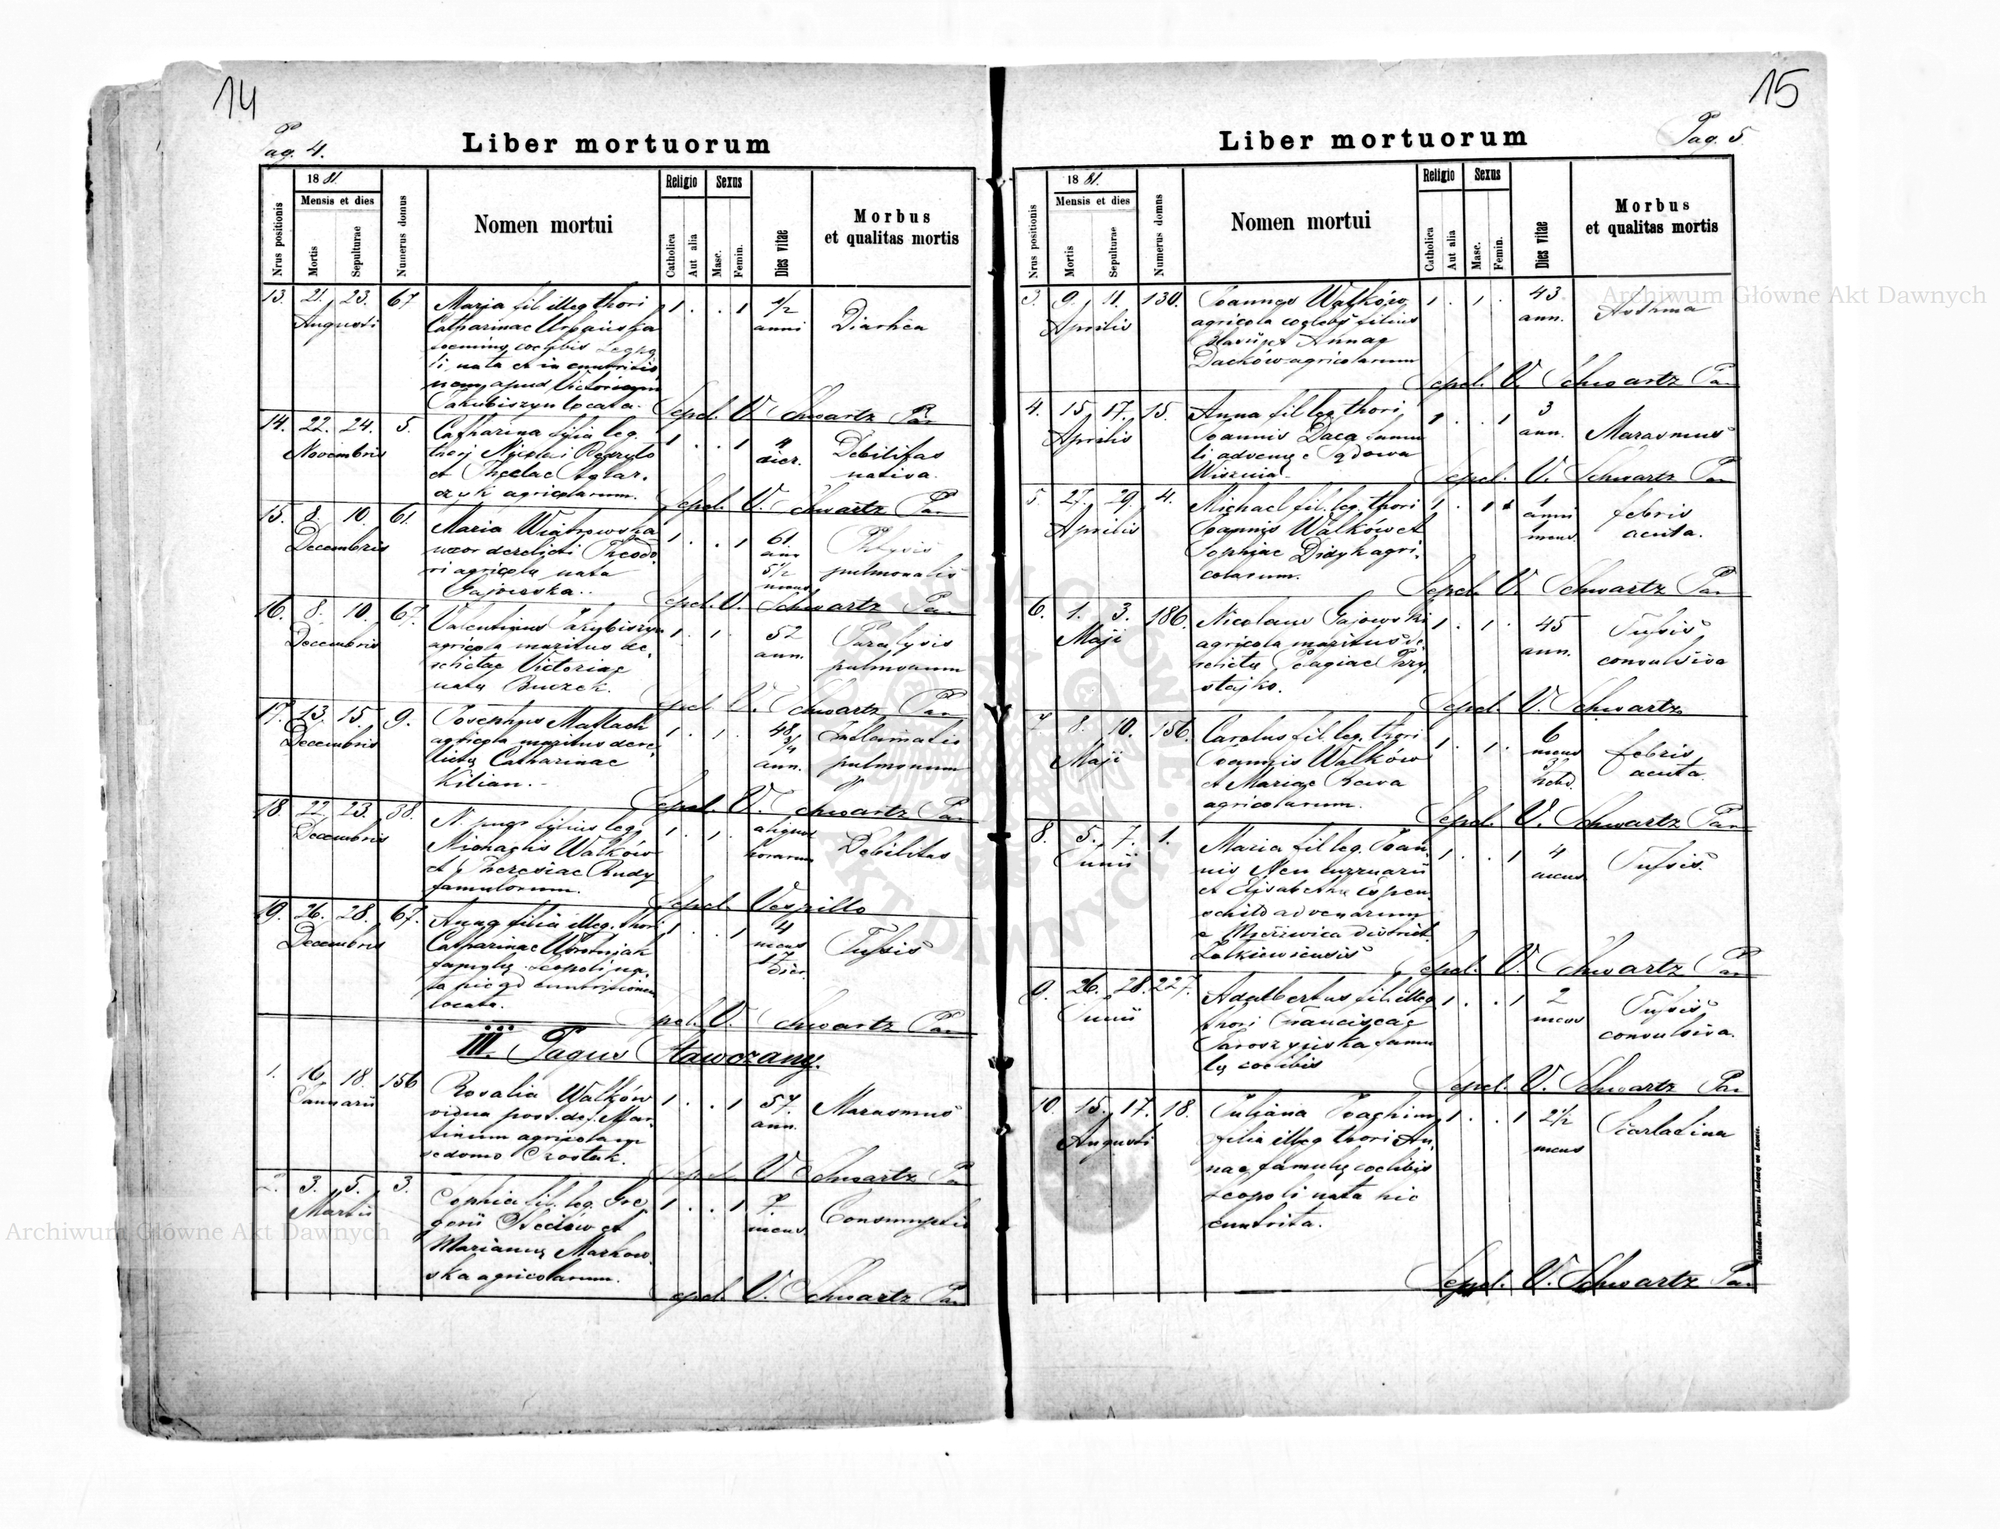 14
Pag. 4.
Liber mortuorum
1881.
Religio
Sexus
Mensis et dies
Nrus positionis
Mortis
Sepulturae
Numerus domus
Nomen mortui
Catholica
Aut alia
Masc.
Femin.
Dies vitae
Morbus
et qualitas mortis
13. 21. 23. 67 Maria fil. illeg. thori 1 . . 1 1/2
Augusti Catharinae anni Diarhea
coelibis
nata et in
apud
locata.
Sepel. V. Schwartz Par
14. 22. 24. 5. Catharina filia leg. 1 . . 1 4 Debilitas
Novembris thori dier. nativa.
et Theclae
agricolarum.
Sepel. V. Schwartz Par
15. 8. 10. 61. Maria 1 . . 1 61. Phtysis
Decembris uxor derelicti Theodo ann pulmonalis
ri agricola nata 5 1/2
mens
Sepel. V. Schwartz Par
16. 8. 10. 67. Valentinus 1 . 1 . 52 Paralysis
Decembris agricola maritus de- ann. pulmonum
relictae Victoriae
natae Buczek.
Sepel. V. Schwartz Par
17. 13. 15. 9. Josephus 1 . 1 . 48
Decembris agricola maritus dere 3/4 pulmonum
lictae Catharinae ann.
Kilian.
Sepel. V. Schwartz Par
18. 22. 23. 38. filius leg. 1 . 1 . aliquot
Decembris Michaelis Walków horarum Debilitas
et Theresiae Rudy
famulorum.
Sepel. Vespillo
19. 26. 28. 67. Anna filia illeg. thori 1 . . 1 4
Decembris Catharinae mens Tussis
famulae Leopoli na- 17
ta hic ad dier.
locata.
Sepel. V. Schwartz Par
III. Pagus Stawczany.
1. 16. 18. 156 Rosalia Walków 1 . . 1 57. Marasmus
Januarii vidua post def. Mar- ann.
tinum agricolam
sedomo Chostak.
Sepel. V. Schwartz Par
2. 3. 5. 3. Sophia fil. leg. Gre 1 . . 1 7
Martii gorii et mens. Consumptio
Mariannae Markow
ska agricolarum.
Sepel. V. Schwartz Par
15
Pag. 5
Liber mortuorum
1881.
Religio
Sexus
Mensis et dies
Nrus positionis
Mortis
Sepulturae
Numerus domus
Nomen mortui
Catholica
Aut alia
Masc.
Femin.
Dies vitae
Morbus
et qualitas mortis
3. 9. 11. 130. Joannes Walków 1 . 1 . 43
Aprilis agricola coelebs filius ann. Asthma
Blasii et Annae
Daców agricolarum
Sepel. V. Schwartz Par
4. 15. 17. 15. Anna fil. leg. thori 1 . . 1 3
Aprilis Joannis Daca famu ann. Marasmus
li advenae e Sądowa
Wisznia.
Sepel. V. Schwartz Par
5. 27. 29. 4. Michael fil. leg. thori 1 . 1 1 febris
Aprilis Joannis Walków et anni acuta.
Sophiae Didyk agri- 1
colarum. mens.
Sepel. V. Schwartz Par
6. 1. 3. 186. Nicolaus Gajowski 1 . 1 . 45 Tussis
Maji agricola maritus de ann. convulsiva
relictae Pelagiae Przy
stajko.
Sepel. V. Schwartz
7. 8. 10. 156. Carolus fil. leg. thori 1 . 1 . 6 febris
Maji Joannis Walków mens acuta.
et Mariae Rewa 3
agricolarum. hebd.
Sepel. V. Schwartz Par
8. 5. 7. 1. Maria fil. leg. Joan- 1 . . 1 4 Tussis
Junii nis Neu mens
et Elisabethae
schild advenarum
e district.
Zolkiewiensis
Sepel. V. Schwartz Par
9. 26. 28. 227. Adalbertus fil. illeg 1 . . 1 2 Tussis
Junii thori Franciscae mens convulsiva.
Jaroszyńska famu
lae coelibis
Sepel. V. Schwartz Par
10. 15. 17. 18. Juliana Joachim 1 . . 1 2 1/2
Augusti filia illeg. thori An- mens Scarlatina
nae, famulae coelibis
Leopoli nata hic
enutrita.
Sepel. V. Schwartz Par
Nakładem Drukarni Ludowej we Lwowie.
Archiwum Główne Akt Dawnych
Archiwum Główne Akt Dawnych